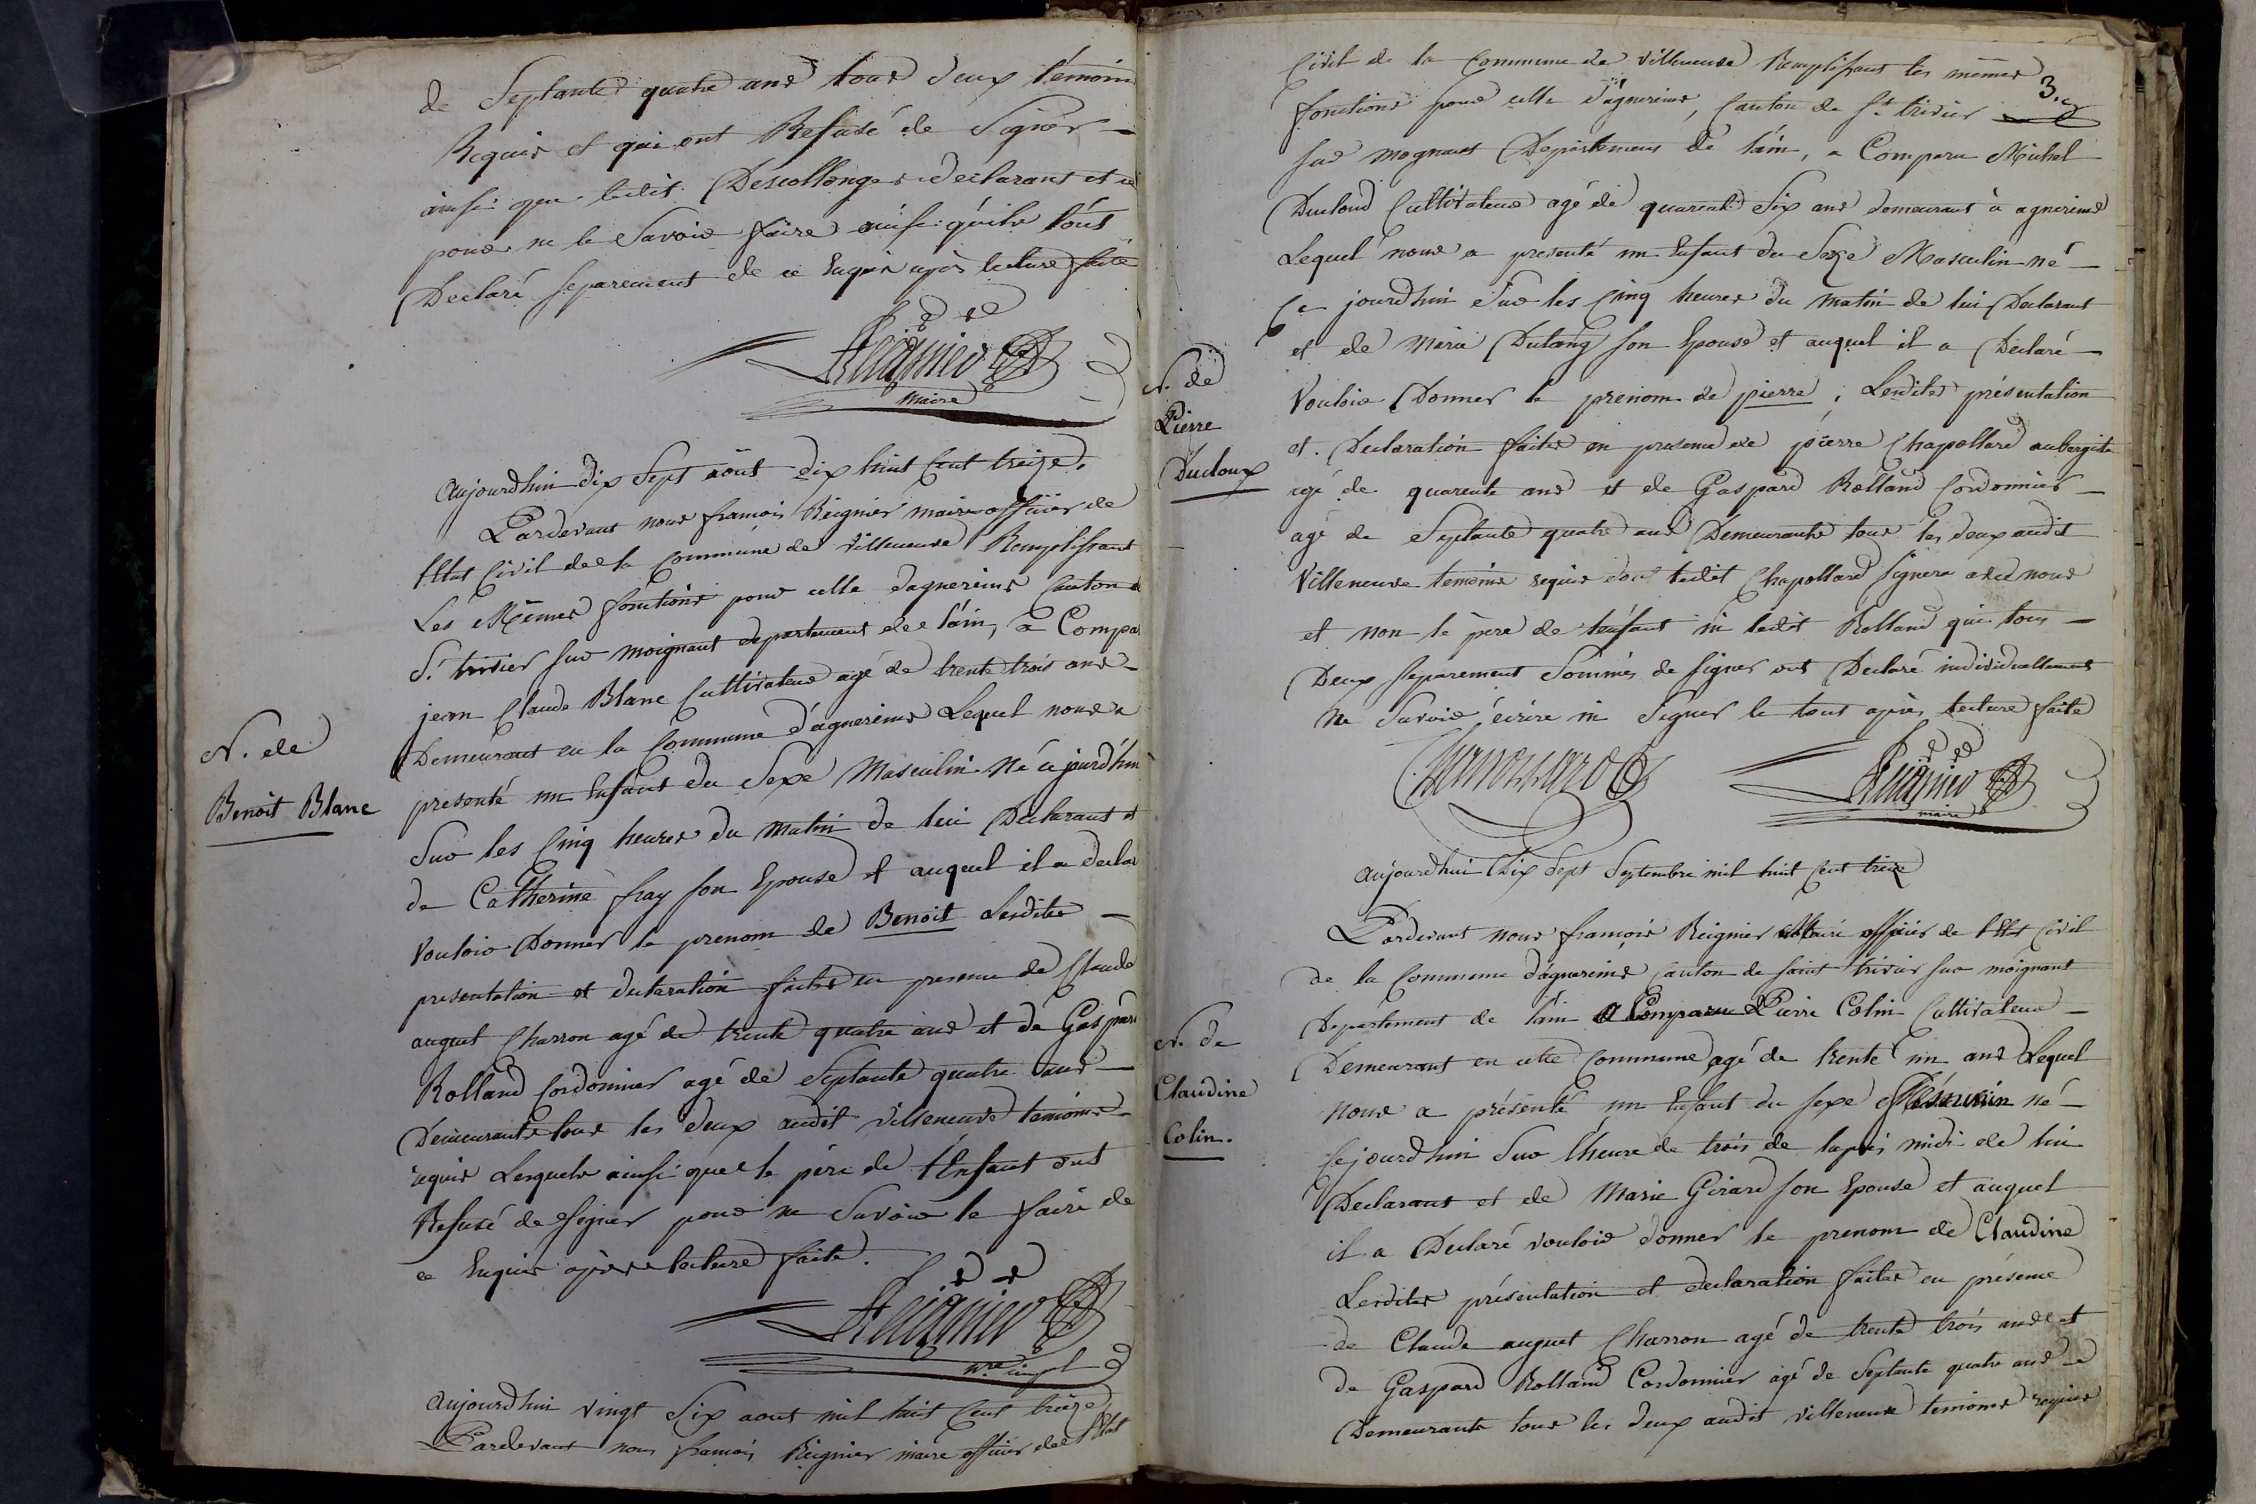 de Septante quatre ans tous deux témoins
Requis et qui ont Refusé de Signer
ainsi que ledit Descollonges declarant et ce
pour ne le Savoir faire ainsi qu'ils l'ont
Declaré Separement de ce Enquis après lecture faite
Reignier
maire
Aujourdhuy dix Sept août dix huit Cent treize.
Pardevant nous françois Reignier maire officier de
l'Etat Civil de la Commune de Villeneuve Remplissant
Les Mêmes fonctions pour celle dagnereins Canton de
St. trivier sur moignant departement de l'ain, a Compa
jean Claude Blanc Cultivateur agé de trente trois ans
Demeurant en la Commune d'agnereins Lequel nous a
presenté un Enfant du Sexe Masculin Né cejourd'hui
Sur les Cinq heures du Matin de lui Declarant et
de Catherine fray son Epouse et auquel il a declaré
Vouloir Donner le prenom de Benoit Lesdites
presentation et declaration faites en presence de Claude
auguet Charron agé de trente quatre ans et de Gaspard
Rolland Cordonnier agé de Septante quatre ans
Demeurants tous les deux audit Villeneuve temoins
requis Lesquels ainsi que le père de l'Enfant ont
Refusé de Signer pour ne Savoir le faire de
ce Enquis après lecture faite.
Reignier
N. de
Benoit Blanc
Aujourdhui vingt Six aout mil huit Cent treize
Pardevant nous françois Reignier maire officier de l'Etat
3.
Civil de la Commune de Villeneuve Remplissant les mêmes
fonctions pour celle d'agnereins, Canton de St trivier
sur mognant Departement de l'ain, a Comparu Michel
Ducloud Cultivateur agé de quarente Six ans demeurant à agnereins
Lequel nous a presenté un Enfant du Sexe Masculin né
Ce jourdhui Sur les Cinq heures du matin de lui Declarant
et de Marie Dutang son Epouse et auquel il a Declaré
Vouloir Donner le prenom de pierre ; Lesdites présentation
et Declaration faites en presence de pierre Chapollard aubergiste
agé de quarente ans et de Gaspard Rolland Cordonnier
agé de Septante quatre ans Demeurants tous les deux audit
Villeneuve temoins requis dont ledit Chapollard signera avec nous
et non le père de l'enfant ni ledit Rolland qui tous
Deux separement Sommés de signer ont Declaré individuellement
Ne Savoir écrire ni Signer le tout après lecture faite
Reignier
maire
N. de
Pierre
Ducloux
Aujourdhui Dix Sept Septembre mil huit Cent treize
Pardevant nous françois Reignier Maire officier de l'Etat Civil
de la Commune d'agnereins Canton de saint trivier sur moignant
Departement de l'ain a Comparu Pierre Colin Cultivateur
Demeurant en cette Commune agé de trente un ans Lequel
nous a présenté un Enfant du sexe né
Cejourdhui Sur l'heure de trois de l'après midi de lui
Declarant et de Marie Girard son Epouse et auquel
il a Declaré vouloir donner le prenom de Claudine
Lesdites présentation et declaration faites en présence
de Claude auguet Charron agé de trente trois ans et
de Gaspard Rolland Cordonnier agé de Septante quatre ans
Demeurants tous les deux audit Villeneuve temoins requis
N. de
Claudine
Colin.